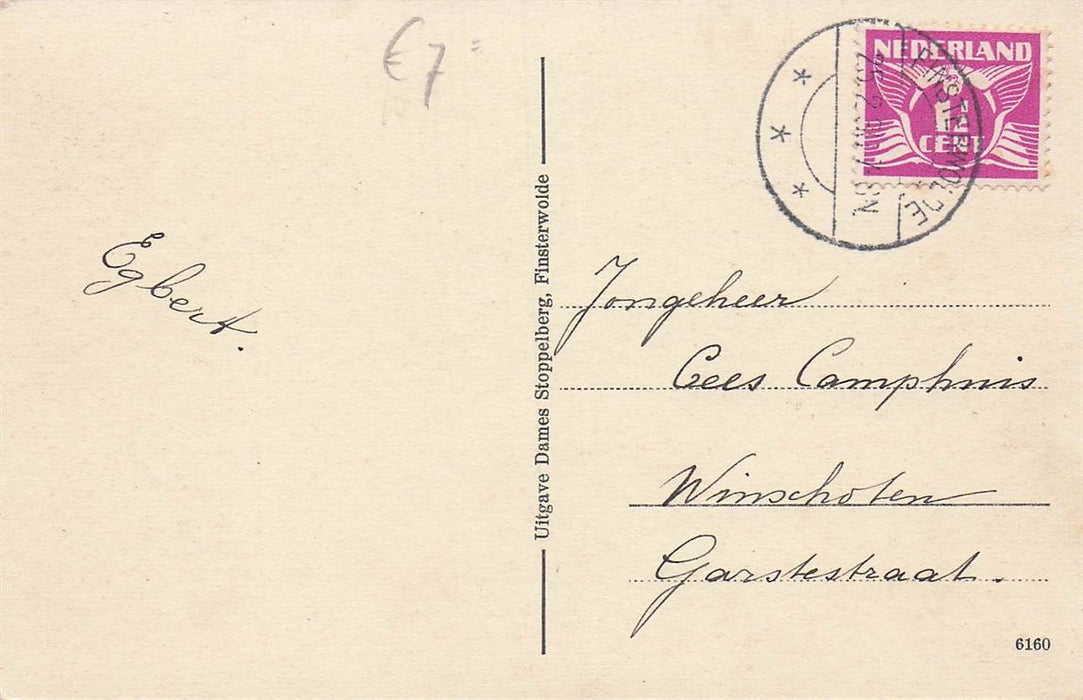 € 7=
NEDERLAND
CENT
FINSTERWOLDE
Egbert.
Uitgave Dames Stoppelberg, Finsterwolde
Jongeheer
Cees Camphuis
Winschoten
Garstestraat.
6160